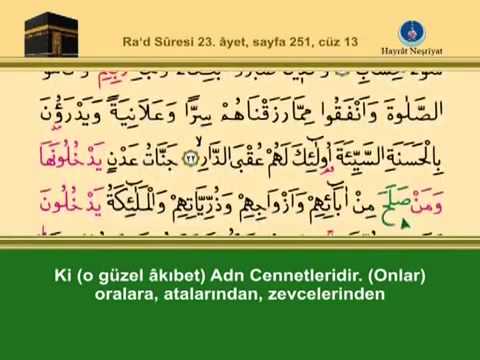 Ra'd Sûresi 23. âyet, sayfa 251, cüz 13
Hayrât Neşriyat
الصَّلٰوةَ وَاَنْفَقُوا مِمَّا رَزَقْنَاهُمْ سِرًّا وَعَلَانِيَةً وَيَدْرَؤُنَ
بِالْحَسَنَةِ السَّيِّئَةَ اُولٰٓئِكَ لَهُمْ عُقْبَى الدَّارِۙ ﴿٢٢﴾ جَنَّاتُ عَدْنٍ يَدْخُلُونَهَا
وَمَنْ صَلَحَ مِنْ اٰبَٓائِهِمْ وَاَزْوَاجِهِمْ وَذُرِّيَّاتِهِمْ وَالْمَلٰٓئِكَةُ يَدْخُلُونَ
Ki (o güzel âkıbet) Adn Cennetleridir. (Onlar)
oralara, atalarından, zevcelerinden